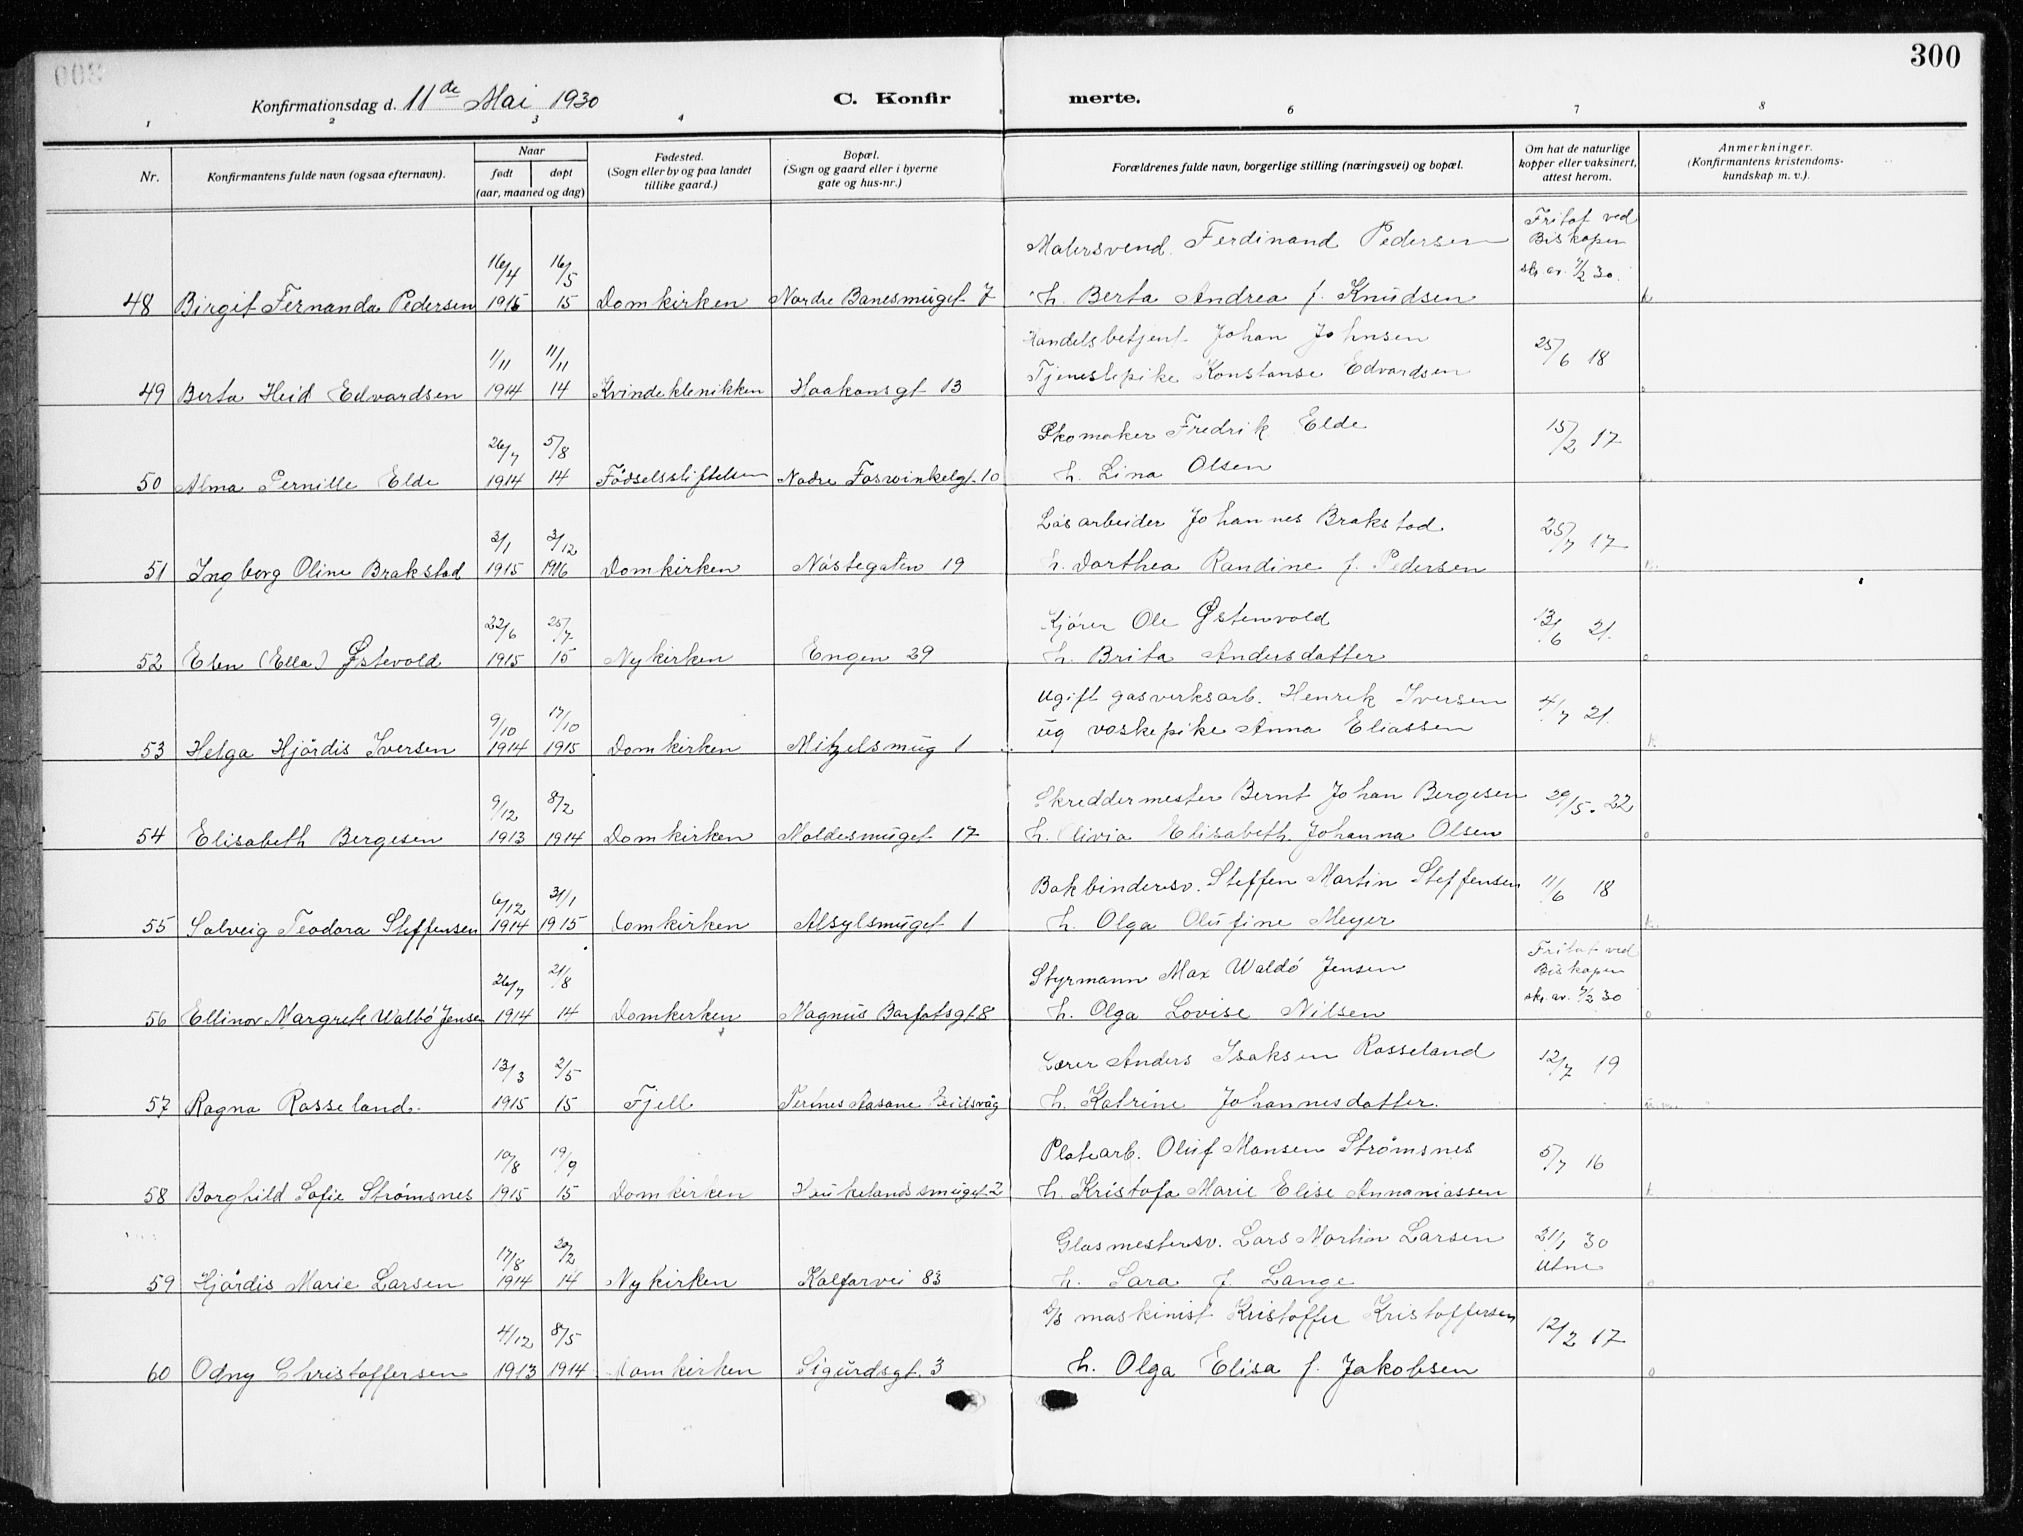 300
Konfirmationsdag d. 11de Mai 1930
C. Konfirmerte.
1 2 3 4 6 7 8
Nr.
Konfirmantens fulde navn (ogsaa efternavn).
Naar
født døpt
(aar, maaned og dag)
Fødested.
(Sogn eller by og paa landet
tillike gaard.)
Bopæl.
(Sogn og gaard eller i byerne
gate og hus-nr.)
Forældrenes fulde navn, borgerlige stilling (næringsvei) og bopæl.
Om hat de naturlige
kopper eller vaksinert,
attest herom.
Anmerkninger.
(Konfirmantens kristendoms-
kundskap m. v.).
Malersvend. Ferdinand Pedersen Fritat ved
Biskopen
16/4 16/5 skr. av. 7/2 30.
48 Birgit Fernanda Pedersen 1915 15 Domkirken Nordre Banesmuget 7 h. Berta Andrea f. Knudsen
1/11 11/11 Handelsbetjent Johan Johnsen 25/6 18
49 Berta Heid Edvardsen 1914 14 Kvindeklenikken Haakonsgt 13 Tjenestepike Konstanse Edvardsen
26/7 5/8 Skomaker Fredrik Elde 15/2 17
50 Alma Pernille Elde 1914 14 Fødselsstiftelsen Nodre Foswinkelgt. 10 h. Lina Olsen
3/1 3/12 Løsarbeider Johannes Brakstad 25/7 17
51 Ingborg Oline Brakstad 1915 1916 Domkirken Nøstegaten 19 h. Dorthea Randine f. Pedersen
22/6 25/7 Kjører Ole Østenvold 13/6 21.
52 Elen (Ella) Østevold 1915 15 Nykirken Engen 29 h. Brita Andersdatter
9/10 17/10 Ugift gasverksarb. Henrik Iversen 4/7 21.
53 Helga Hjørdis Iversen 1914 1915 Domkirken Mitzelsmug 1 ug vaskepike Anna Eliassen
9/12 8/2 Skreddermester Bernt Johan Bergesen 29/5. 22
54 Elisabeth Bergesen 1913 1914 Domkirken Noldesmuget 17 h. Olivia Elisabeth Johanna Olsen
6/12 31/1 Bokbindersv. Steffen Martin Steffensen 11/6 18
55 Solveig Teodora Steffensen 1914 1915 Domkirken Alsylsmuget 1 h. Olga Olufine Meyer
26/7 21/8 Styrmann Max Waldø Jensen Fritat ved
Biskopen
skr. av. 7/2 30
56 Ellinor Margrete Walbø Jensen 1914 14 Domkirken Magnus Barfotsgt 8 h. Olga Lovise Nilsen
13/3 2/5 Lærer Anders Isaksen Rosseland 12/7 19
57 Ragna Rosseland. 1915 15 Fjell Aasane h. Katrine Johannesdatter.
10/8 19/9 Platearb. Oluf Monsen Strømsnes 5/7 16
58 Borghild Sofie Strømsnes 1915 15 Domkirken Haukelandssmuget 2 h. Kristofa Marie Elise Annaniassen
17/8 20/2 Glasmestersv. Lars Martin Larsen 21/1 30
Utne
59 Hjørdis Marie Larsen 1914 14 Nykirken Kalfarvei 83 h. Sara f. Lange
4/12 8/5 D/S maskinist Kristoffer Kristoffersen 12/2 17
60 Odny Christoffersen 1913 1914 Domkirken Sigurdsgt. 3 h. Olga Elisa f. Jakobsen